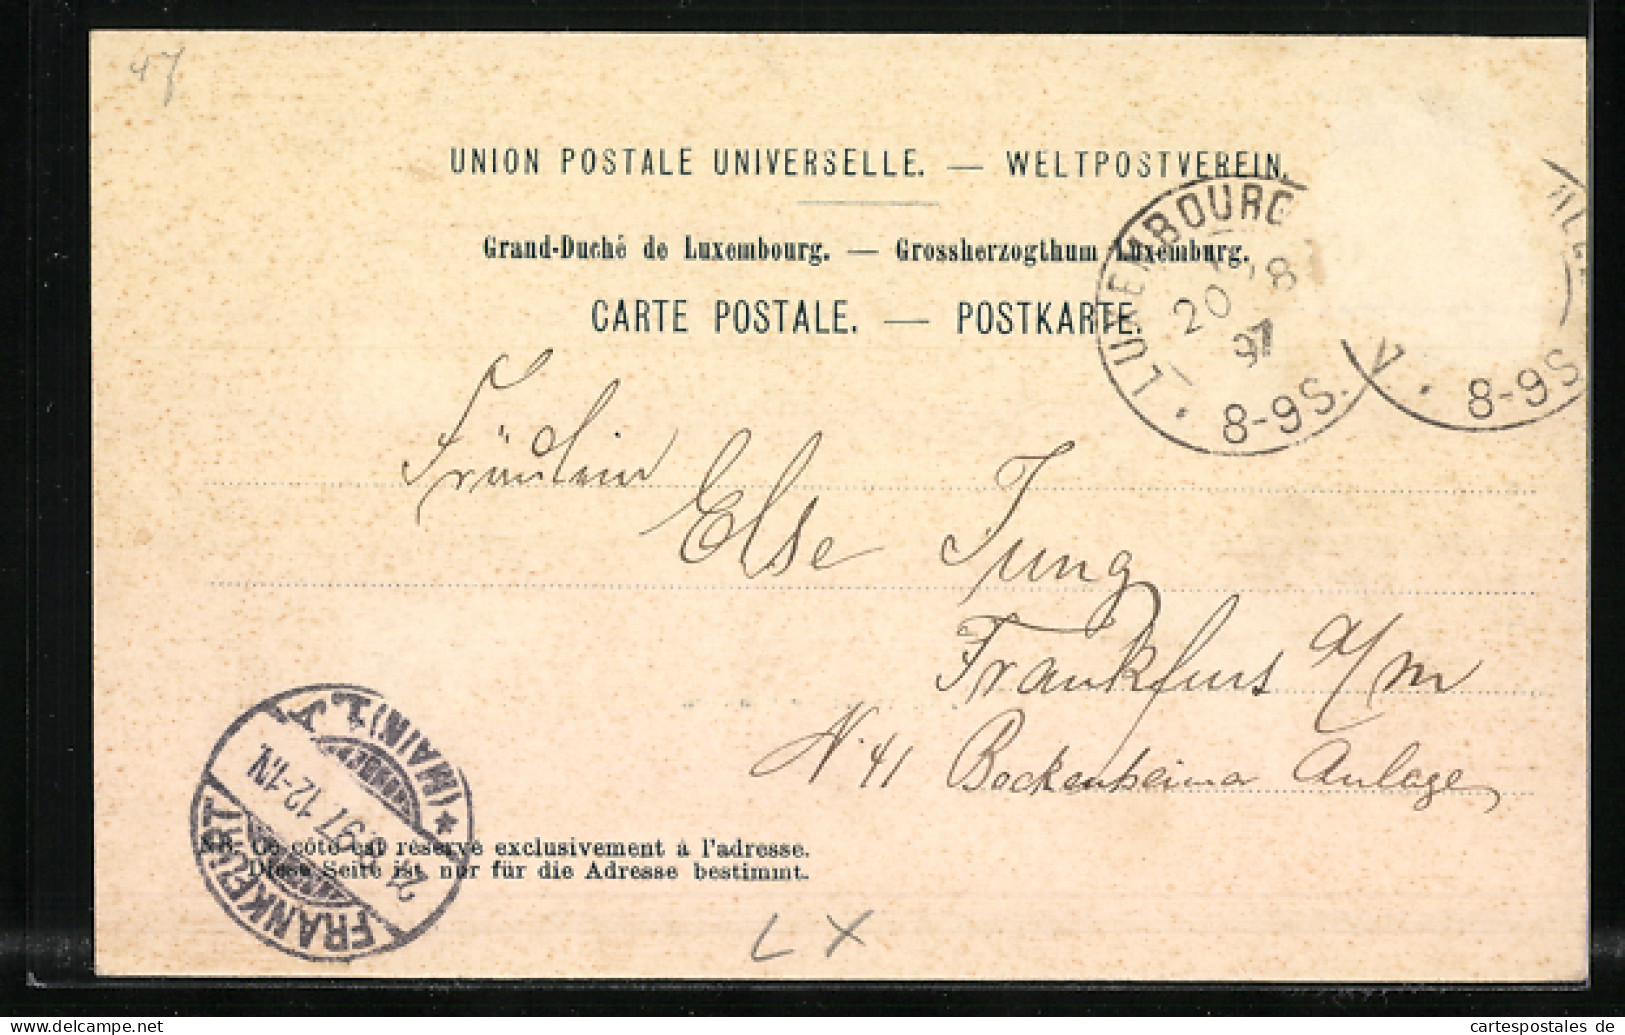 47
UNION POSTALE UNIVERSELLE. — WELTPOSTVEREIN.
Grand-Duché de Luxembourg. — Grossherzogthum Luxemburg.
CARTE POSTALE. — POSTKARTE.
LUXEMBOURG
20 8
97
8-9S. V.
8-9S
Fräulein
Else Jung
Frankfurt a/m
N. 41 Bockenheimer Anlage
FRANKFURT (MAIN) 1.
21.8.97.12-1N.
NB. Ce côté est réservé exclusivement à l'adresse.
Diese Seite ist nur für die Adresse bestimmt.
LX
cartespostales.de
cartespostales de